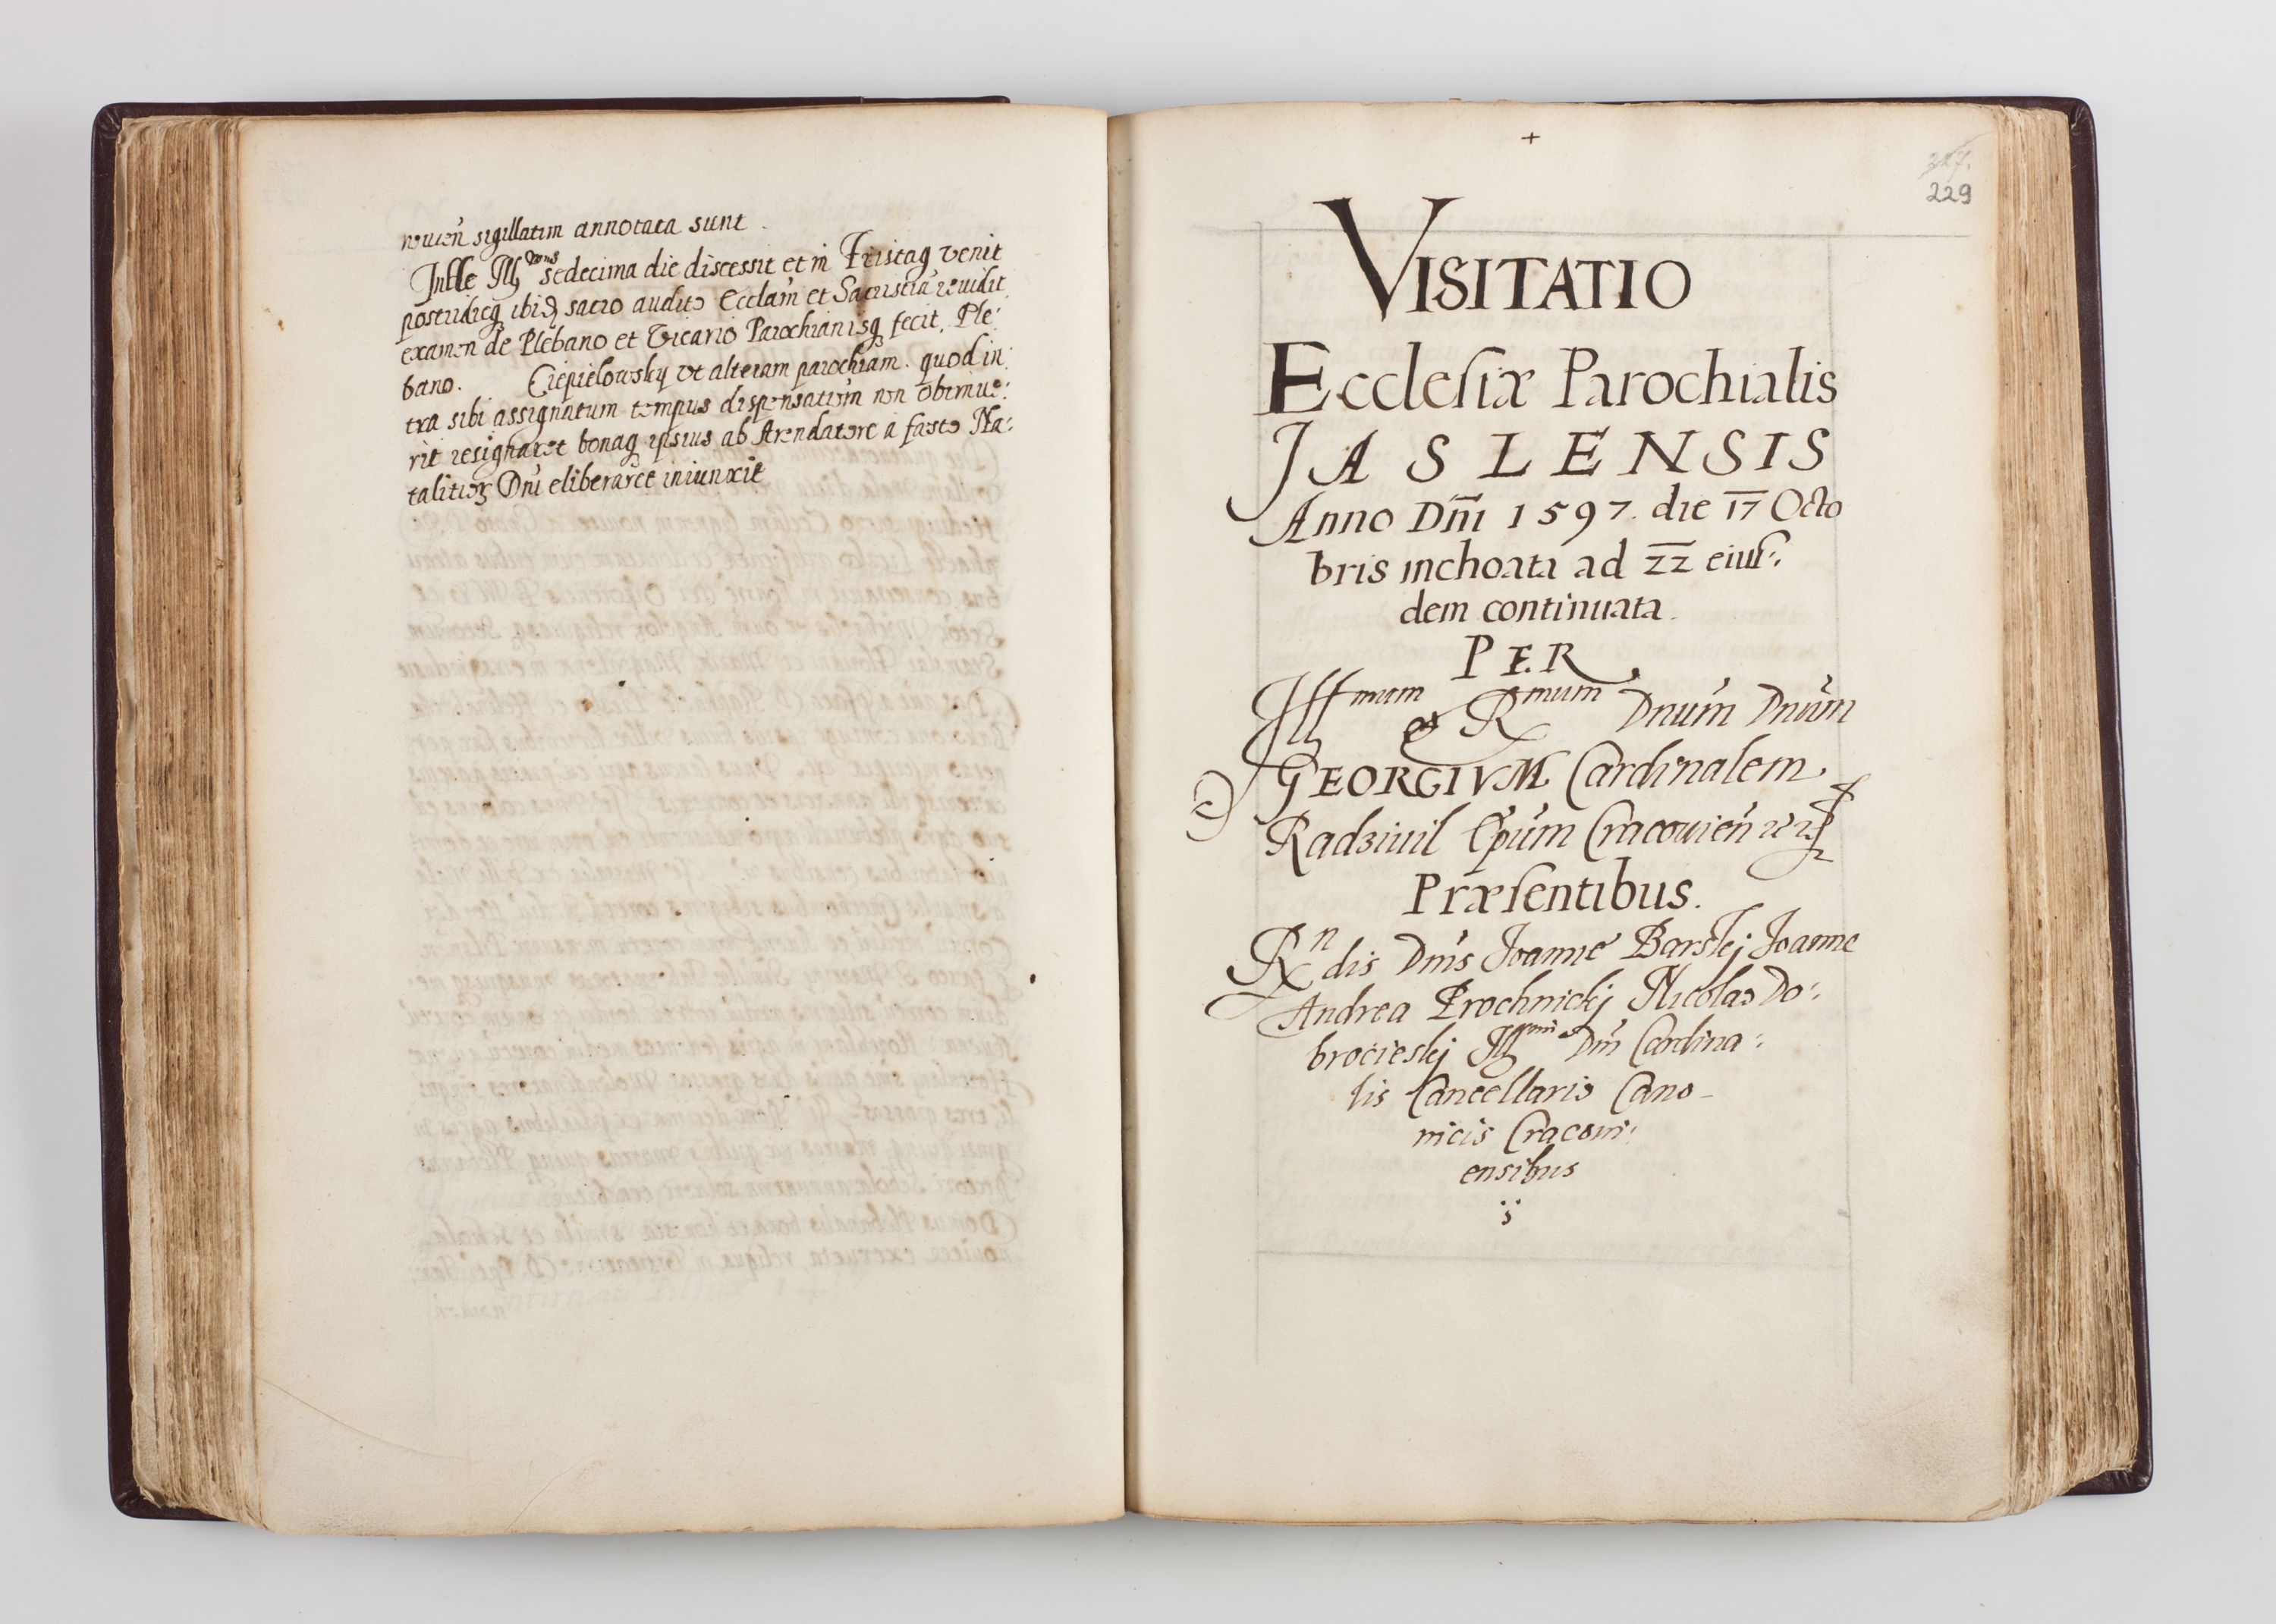 nouien sigillatim annotata sunt.
Inde Ill Dnus sedecima die discessit et in Fristag venit
postridieq ibid sacro audito Ecclam et Sacristia reuidit
examen de Plebano et Vicario Parochianisq fecit, Ple:
bano. Ciepielowsky vt alteram parochiam. quod in:
tra sibi assignatum tempus dispensatiom non obtinue:
rit resignaret bonaq ipsius ab Arendatore a festo Na:
talitior Dni eliberaret iniunxit
+
327.
229
VISITATIO
Ecclesiæ Parochialis
JASLENSIS
Anno Dni 1597. die 17 Octo
bris inchoata ad 22 eius:
dem continuata.
PER
Illmum & Rmum Dnum Dnum
GEORGIVM Cardinalem
Radziuil Epum Cracouien
Præsentibus.
Rndis Dnis Joanne Barskj Joanne
Andrea Prochnickj Nicolao Do:
brocieskj Illmi Dni Cardina:
lis Cancellario Cano-
nicis Cracoui:
ensibus